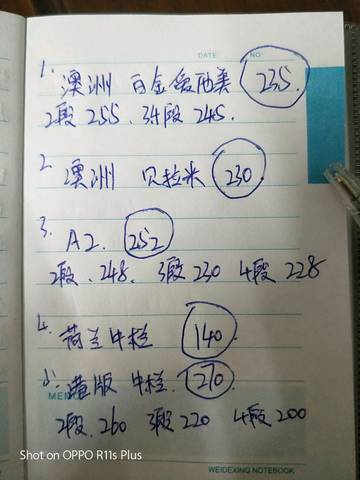 DATE: NO:
1. 澳洲 白金爱他美 235.
2段 255. 34段 245.
2. 澳洲 贝拉米 230
3. A2. 252
2段. 248. 3段 230 4段 228
4. 荷兰牛栏 140
5. 港版 牛栏. 210
MEMO
2段. 260 3段 220 4段 200
Shot on OPPO R11s Plus
WEIDEXING NOTEBOOK